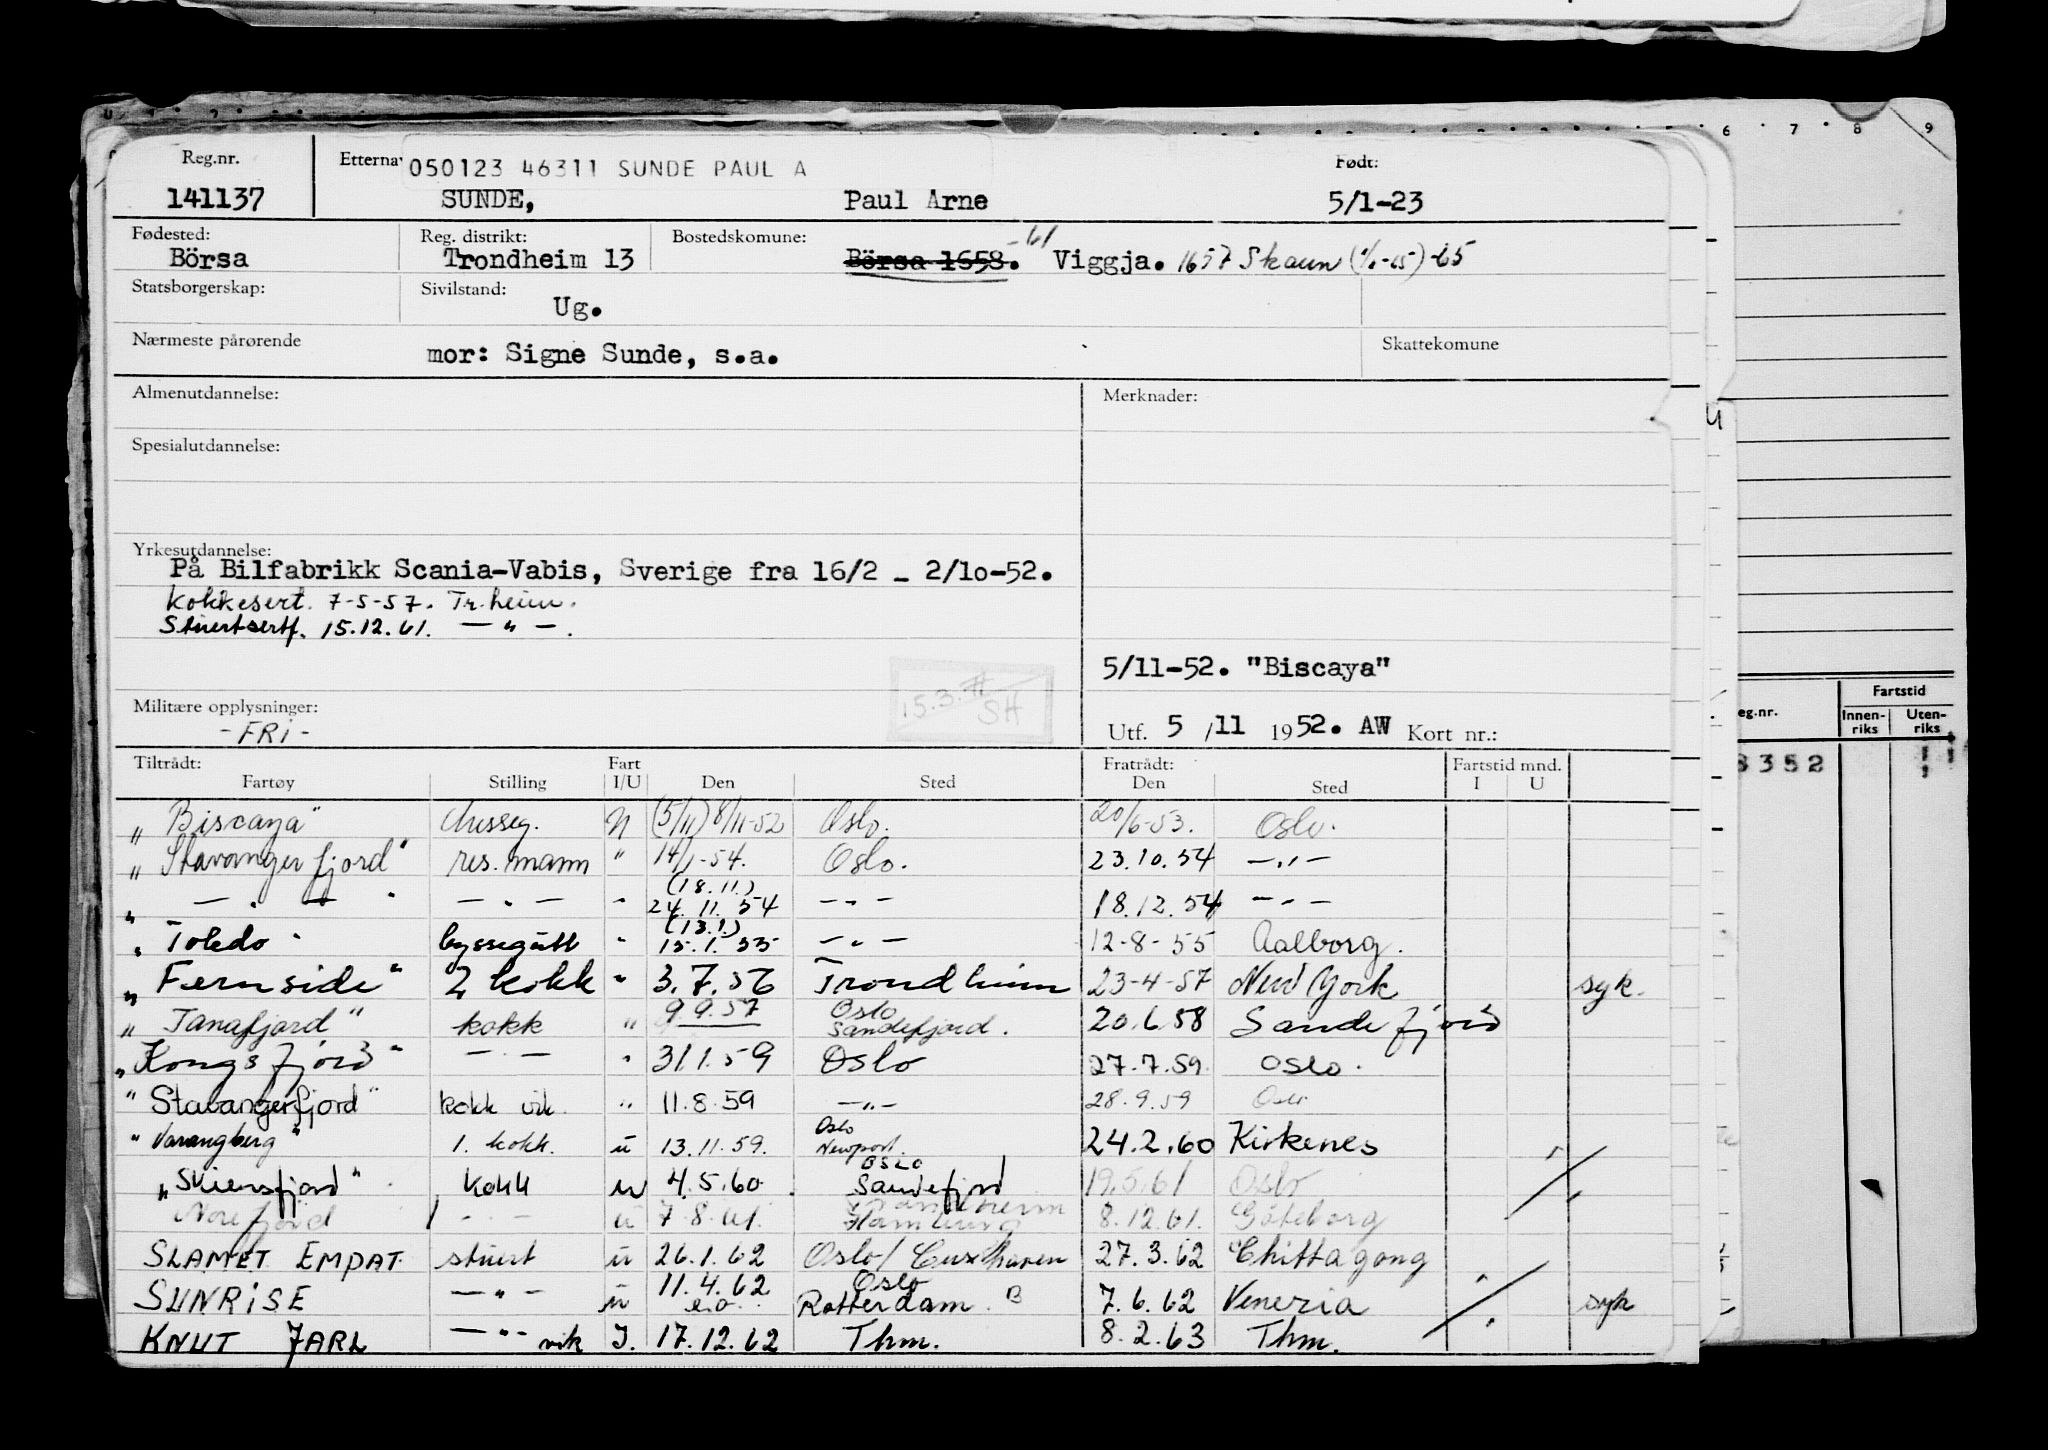 6 7 8 9
Reg.nr. Etterna 050123 46311 SUNDE PAUL A Født:
141137 SUNDE, Paul Arne 5/1-23
Fødested: Reg. distrikt: Bostedskomune: -61
Börsa Trondheim 13 Börsa 1658. Viggja. 1657 Skaun -65
Statsborgerskap: Sivilstand:
Ug.
Nærmeste pårørende mor: Signe Sunde, s.a. Skattekomune
Almenutdannelse: Merknader:
Spesialutdannelse:
Yrkesutdannelse:
På Bilfabrikk Scania-Vabis, Sverige fra 16/2 - 2/10-52.
Kokkesert. 7-5-57. Tr.heim.
Stuertsertf. 15.12.61. — " —.
5/11-52. "Biscaya"
15.3. SH
Militære opplysninger:
- FRi -
Utf. 5/11 1952. AW Kort nr.:
eg.nr. Fartstid
Innen-riks Uten-riks
8352
Tiltrådt: Fart Fratrådt: Fartstid mnd.
Fartøy Stilling I/U Den Sted Den Sted I U
"Biscaya" (5/11) 8/11-52 Oslo. 20/6-53. Oslo.
"Stavangerfjord" res. mann " 14/1-54. Oslo. 23.10.54 — " —
" — " — " — " — " (18.11.) 24.11.54 — " — 18.12.54 — " —
"Toledo" byssegutt " (13.1.) 15.1.55 — " — 12-8-55 Aalborg.
"Fernside" 2 kokk " 3.7.56 Trondheim 23-4-57 New York syk.
"Tanafjord" kokk " 9.9.57 Oslo Sandefjord. 20.6.58 Sandefjord
"Kongsfjord" — " — " 31.1.59 Oslo 27.7.59. Oslo.
"Stavangerfjord" kokk vik. " 11.8.59 — " — 28.9.59 Oslo
"Varangberg" 1. kokk. u 13.11.59. Oslo Newport. 24.2.60 Kirkenes
"Skiensfjord" Kokk u 4.5.60. Oslo Sandefjord 19.5.61 Oslo
Norefjord — " — u 7.8.61. Trondheim Hamburg 8.12.61. Göteborg
SLAMET EMPAT. stuert u 26.1.62 Oslo/Cuxhaven 27.3.62 Chittagong
SUNRISE — " — u 11.4.62 e.o. Oslo Rotterdam. B 7.6.62 Venezia syk
KNUT JARL — " — vik I. 17.12.62 Thm. 8.2.63 Thm.